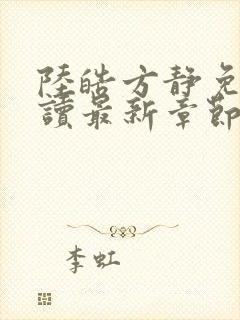 陸皓方靜免
讀最新章節
李虹